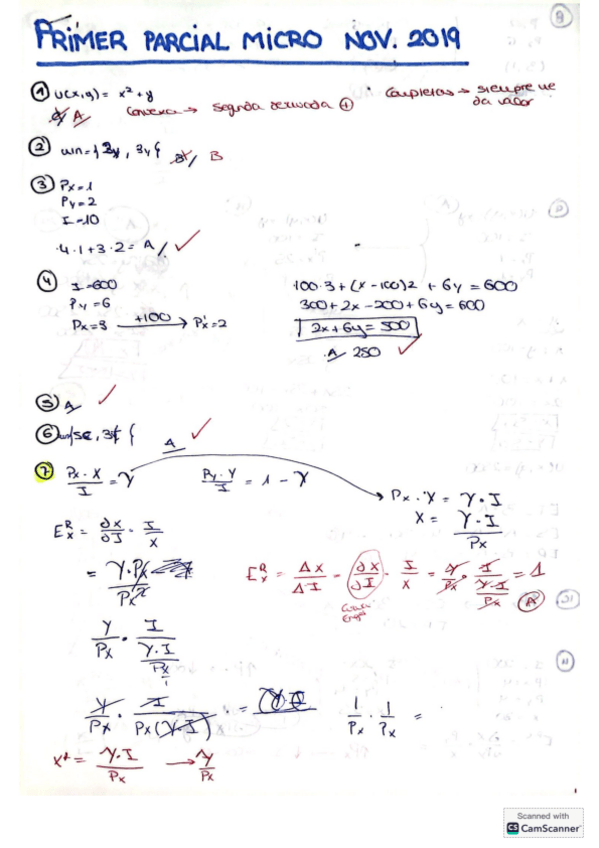 PRIMER PARCIAL MICRO NOV. 2019
① U(x,y) = x² + y
A Convexa → segunda derivada ⊕
· Completas → siempre me da valor
② min = { 2y, 3y { B
③ Px = 1
Py = 2
I = 10
· 4·1 + 3·2 = A/. ✓
④ I = 600
Py = 6
Px = 3 +100 → P'x = 2
100·3 + (x - 100)2 + 6y = 600
300 + 2x - 200 + 6y = 600
2x + 6y = 500
A 250 ✓
⑤ A ✓
⑥ A ✓
⑦ Px · X / I = γ
Py · Y / I = 1 - γ
Px · X = γ · I
X = γ · I / Px
E^R_x = ∂X/∂I · I/X
= γ · Px / Px²
E^R_x = ΔX/ΔI = ∂X/∂I · I/X = γ/Px · I / (γ·I / Px) = 1
Ⓐ
γ/Px · I / (γ·I / Px)
γ/Px · I / Px(γ·I) =
1/Px · 1/Px =
X* = γ·I / Px → γ/Px
Scanned with
CS CamScanner